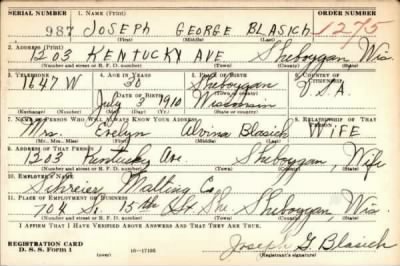 SERIAL NUMBER 1. NAME (Print) ORDER NUMBER
987 JOSEPH GEORGE BLASICH 1275
(First) (Middle) (Last)
2. ADDRESS (Print)
1203 KENTUCKY AVE Sheboygan Wis
(Number and street or R. F. D. number) (Town) (County) (State)
3. TELEPHONE 4. AGE IN YEARS 5. PLACE OF BIRTH 6. COUNTRY OF CITIZENSHIP
1647W 30 Sheboygan
DATE OF BIRTH (Town or county) U.S.A
July 3 1910 Wisconsin
(Exchange) (Number) (Mo.) (Day) (Yr.) (State or country)
7. NAME OF PERSON WHO WILL ALWAYS KNOW YOUR ADDRESS 8. RELATIONSHIP OF THAT PERSON
Mrs. Evelyn Alvina Blasich WIFE
(Mr., Mrs., Miss) (First) (Middle) (Last)
9. ADDRESS OF THAT PERSON
1203 Kentucky Ave. Sheboygan, Wife
(Number and street or R. F. D. number) (Town) (County) (State)
10. EMPLOYER'S NAME
Schreier Malting Co
11. PLACE OF EMPLOYMENT OR BUSINESS
704 So. 15th St. She. Sheboygan, Wis.
(Number and street or R. F. D. number) (Town) (County) (State)
I AFFIRM THAT I HAVE VERIFIED ABOVE ANSWERS AND THAT THEY ARE TRUE.
REGISTRATION CARD
D. S. S. Form 1 (over) 16—17105 Joseph G. Blasich
(Registrant's signature)